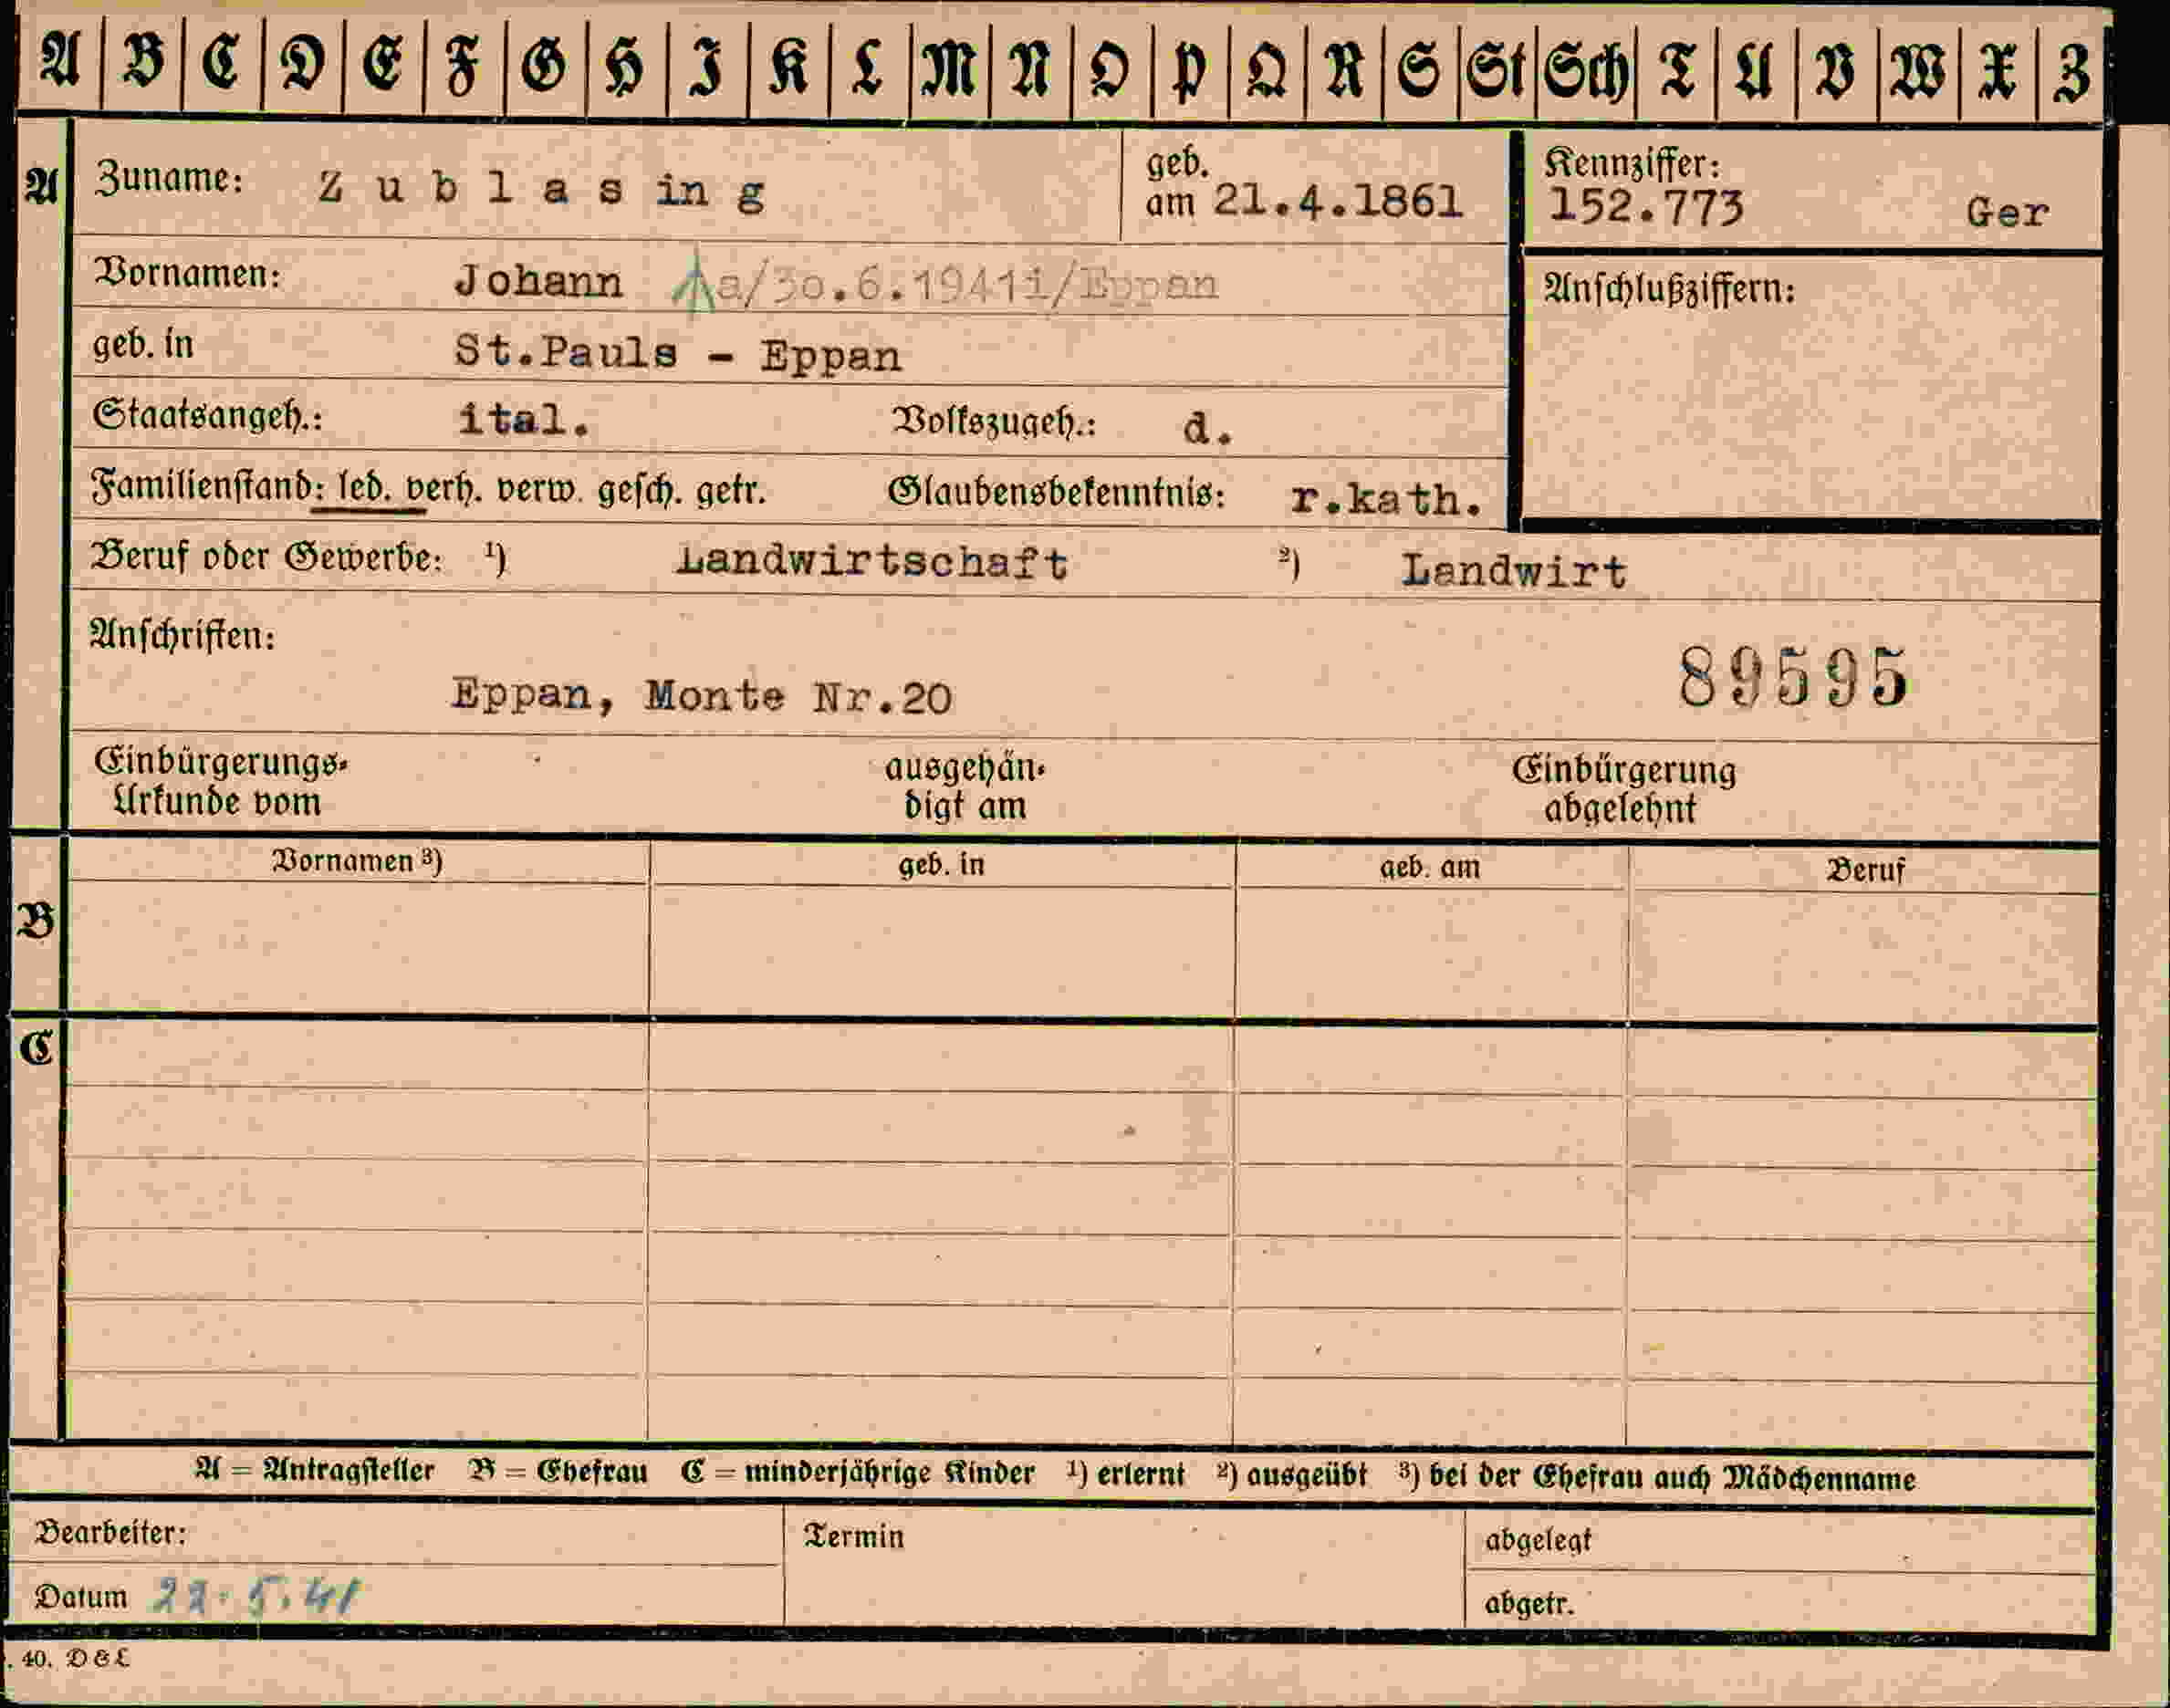 A B C D E F G H I K L M N O P Q R S St Sch T U V W X Z
A Zuname: Zublasing geb. am 21.4.1861 Kennziffer: 152.773 Ger
Vornamen: Johann Aa/30.6.19411/Eppan Anschlußziffern:
geb. in St.Pauls - Eppan
Staatsangeh.: ital. Volkszugeh.: d.
Familienstand: led. verh. verw. gesch. getr. Glaubensbekenntnis: r.kath.
Beruf oder Gewerbe: 1) Landwirtschaft 2) Landwirt
Anschriften:
Eppan, Monte Nr.20 89595
Einbürgerungs- ausgehän- Einbürgerung
Urkunde vom digt am abgelehnt
Vornamen 3) geb. in geb. am Beruf
B
C
A = Antragsteller B = Ehefrau C = minderjährige Kinder 1) erlernt 2) ausgeübt 3) bei der Ehefrau auch Mädchenname
Bearbeiter: Termin abgelegt
Datum 22.5.41 abgetr.
. 40. D & L